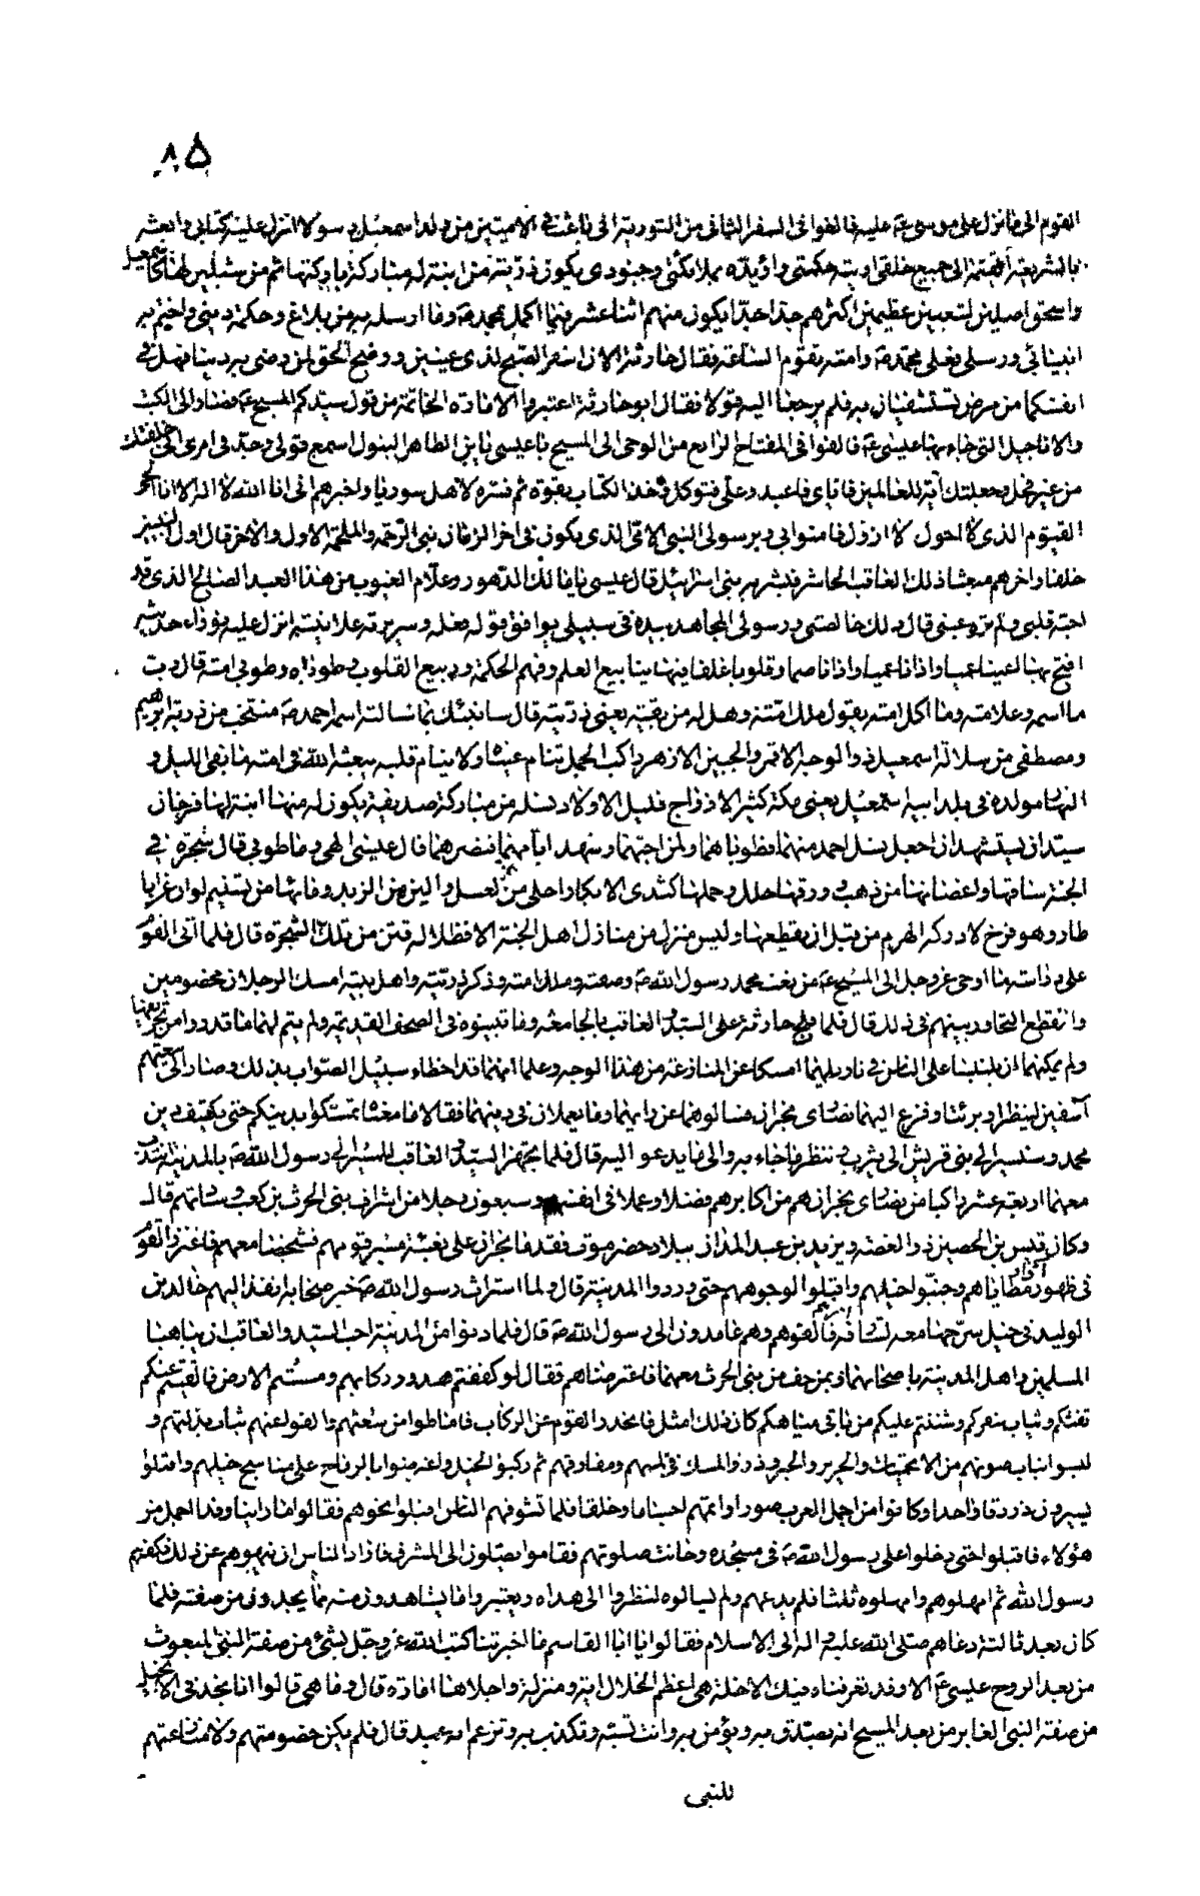 ٨٥
القوم الى ما نزل على موسى ع عليه فالفوا فى السفر الثانى من التورية انى باعث فى الاميين من ولد اسمعيل رسولا انزل عليه كتابى وابعثه
بالشريعة القيمة الى جميع خلقى اوتيه حكمتى واؤيده بملائكتى وجنودى يكون ذريته من ابنة له مباركة باركتها ثم من شبلين لها كاسمعيل
واسحق اصلين لشعبين عظيمين اكثرهم جدا جدا يكون منهم اثنا عشر قيما اكمل بمحمد ص وما ارسله به من بلاغ وحكمة دينى واختم به
انبيائى ورسلى فعلى محمد ص وامته تقوم الساعة فقال حارثة الان اسفر الصبح لذى عينين ووضح الحق لمن رضى به دينا فهل فى
انفسكما من مرض تستشفيان به فلم يرجعا اليه قولا فقال ابو حارثة اعتبروا الامارة الخاتمة من قول سيدكم المسيح ع فصار الى الكتب
والاناجيل التى جاء بها عيسى ع فالفوا فى المفتاح الرابع من الوحى الى المسيح يا عيسى يابن الطاهر البتول اسمع قولى وجد فى امرى انى خلقتك
من غير فحل وجعلتك آية للعالمين فاياى فاعبد وعلى فتوكل وخذ الكتاب بقوة ثم فسره لاهل سوريا واخبرهم انى انا الله لا اله الا انا الحى
القيوم الذى لا احول ولا ازول فامنوا بى وبرسولى النبى الامى الذى يكون فى اخر الزمان نبى الرحمة والملحمة الاول والاخر قال اول النبيين
خلقا واخرهم مبعثا ذلك العاقب الحاشر فبشر به بنى اسرائيل قال عيسى يا مالك الدهور وعلام الغيوب من هذا العبد الصالح الذى قد
احبه قلبى ولم تره عينى قال ذلك خالصتى ورسولى المجاهد بيده فى سبيلى يوافق قوله فعله وسريرته علانيته انزل عليه توراة حديثة
افتح بها اعينا عميا واذانا صما وقلوبا غلفا فيها ينابيع العلم وفهم الحكمة وربيع القلوب وطوباه وطوبى امته قال رب
ما اسمه وعلامته وما اكل امته يقول ملك امته وهل له من بقية يعنى ذرية قال سانبئك بما سالت اسمه احمد ص منتخب من ذرية ابرهيم
ومصطفى من سلالة اسمعيل ذو الوجه الاقمر والجبين الازهر راكب الجمل تنام عيناه ولا ينام قلبه يبعثه الله فى امة ما بقى الليل و
النهار مولده فى بلد ابيه اسمعيل يعنى مكة كثير الازواج قليل الاولاد نسله من مباركة صديقة يكون له منها ابنة لها فرخان
سيدان يستشهدان اجعل نسل احمد منهما فطوباهما ولمن احبهما وشهد ايامهما فنصرهما قال عيسى الهى وما طوبى قال شجرة فى
الجنة ساقها واغصانها من ذهب وورقها حلل وحملها كثدى الابكار احلى من العسل والين من الزبد وماؤها من تسنيم لو ان غرابا
طار وهو فرخ لادركه الهرم من قبل ان يقطعها وليس منزل من منازل اهل الجنة الا وظلاله فنن من تلك الشجرة قال فلما اتى القوم
على دراسة ما اوحى عز وجل الى المسيح ع من نعت محمد رسول الله ص وصفته وملك امته وذكر ذريته واهل بيته امسك الرجلان مخصومين
وانقطع التحاور بينهم فى ذلك قال فلما فلج حارثة على السيد والعاقب بالجامعة وما تبينوه فى الصحف القديمة ولم يتم لهما ما قدروا من تحريفها
ولم يمكنهما ان يلبسا على الناس فى تاويلهما امسكا عن المنازعة من هذا الوجه وعلما انهما قد اخطاء سبيل الصواب بذلك وصارا الى بيعتهم
آسفين لينظرا ويرتئيا وفزع اليهما نصارى نجران فسالوهما عن رايهما وما يعملان فى دينهما فقالا ما معناه تمسكوا بدينكم حتى يكشف دين
محمد وسنسير الى بنى قريش الى يثرب وننظر ما جاء به والى ما يدعو اليه قال فلما تجهز السيد والعاقب للمسير الى رسول الله ص بالمدينة انتدب
معهما اربعة عشر راكبا من نصارى نجران هم من اكابرهم فضلا وعلما فى انفسهم وسبعون رجلا من اشراف بنى الحرث بن كعب وساداتهم قال
وكان قيس بن الحصين ذو الغصه ويزيد بن عبد المدان ببلاد حضرموت فقدما نجران على بقية مسير قومهم فشخصا معهم فاغترز القوم
فى ظهور مطاياهم وجنبوا خيلهم واقبلوا لوجوههم حتى وردوا المدينة قال ولما استراث رسول الله ص خبر اصحابه انفذ اليهم خالد بن
الوليد فى خيل سرحها معه لمشارفة امرهم فالقوهم وهم عامدون الى رسول الله ص قال فلما دنوا من المدينة احب السيد والعاقب ان يباهيا
المسلمين واهل المدينة باصحابهما وبمن حف من بنى الحرث معهما فاعترضاهم فقال لو كففتم صدور ركابكم ومسستم الارض فالقيتم عنكم
تفثكم وثياب سفركم وشننتم عليكم من باقى مياهكم كان ذلك امثل فانحدر القوم عن الركاب فاماطوا من شعثهم والقوا عنهم ثياب بذلتهم و
لبسوا ثياب صونهم من الاتحميات والحرير والحبر وذروا المسك فى لممهم ومفارقهم ثم ركبوا الخيل واعترضوا بالرماح على مناسج خيلهم واقبلوا
يسيرون رزدقا واحدا وكانوا من اجمل العرب صورا واتمهم اجساما وخلقا فلما تشوفهم الناس اقبلوا نحوهم فقالوا ما راينا وفدا اجمل من
هؤلاء فاقبلوا حتى دخلوا على رسول الله ص فى مسجده وحانت صلوتهم فقاموا يصلون الى المشرق فاراد الناس ان ينهوهم عن ذلك فكفهم
رسول الله ثم امهلهم وامهلوه ثلثا فلم يدعهم ولم يسالوه لينظروا الى هداه ويعتبروا ما يشاهدون منه مما يجدون من صفته فلما
كان بعد ثالثة دعاهم صلى الله عليه واله الى الاسلام فقالوا يا ابا القاسم ما اخبرتنا كتب الله عز وجل بشئ من صفة النبى المبعوث
من بعد الروح عيسى ع الا وقد تعرفناه فيك الا خلة هى اعظم الخلال اية ومنزلة واجلاها امارة قال وما هى قالوا انا نجد فى الانجيل
من صفة النبى الغابر من بعد المسيح انه يصدق به ويؤمن به وانت تسبه وتكذب به وتزعم انه عبد قال فلم تكن خصومتهم ولا منازعتهم
للنبى